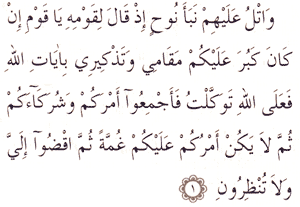 وَاتْلُ عَلَيْهِمْ نَبَأَ نُوحٍ إِذْ قَالَ لِقَوْمِهِ يَا قَوْمِ إِنْ
كَانَ كَبُرَ عَلَيْكُمْ مَقَامِي وَتَذْكِيرِي بِآيَاتِ اللهِ
فَعَلَى اللهِ تَوَكَّلْتُ فَأَجْمِعُوآ أَمْرَكُمْ وَشُرَكَآءَكُمْ
ثُمَّ لاَ يَكُنْ أَمْرُكُمْ عَلَيْكُمْ غُمَّةً ثُمَّ اقْضُوآ إِلَيَّ
وَلاَ تُنْظِرُونِ ١